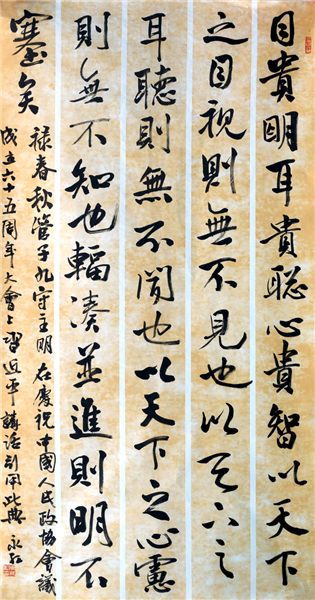 目貴明耳貴聰心貴智以天下
之目視則無不見也以天下之
耳聽則無不聞也以天下之心慮
則無不知也輻湊並進則明不
塞矣
禄春秋管子九守主明在慶祝中國人民政協會議
成立六十五周年大會上習近平講話引用此典